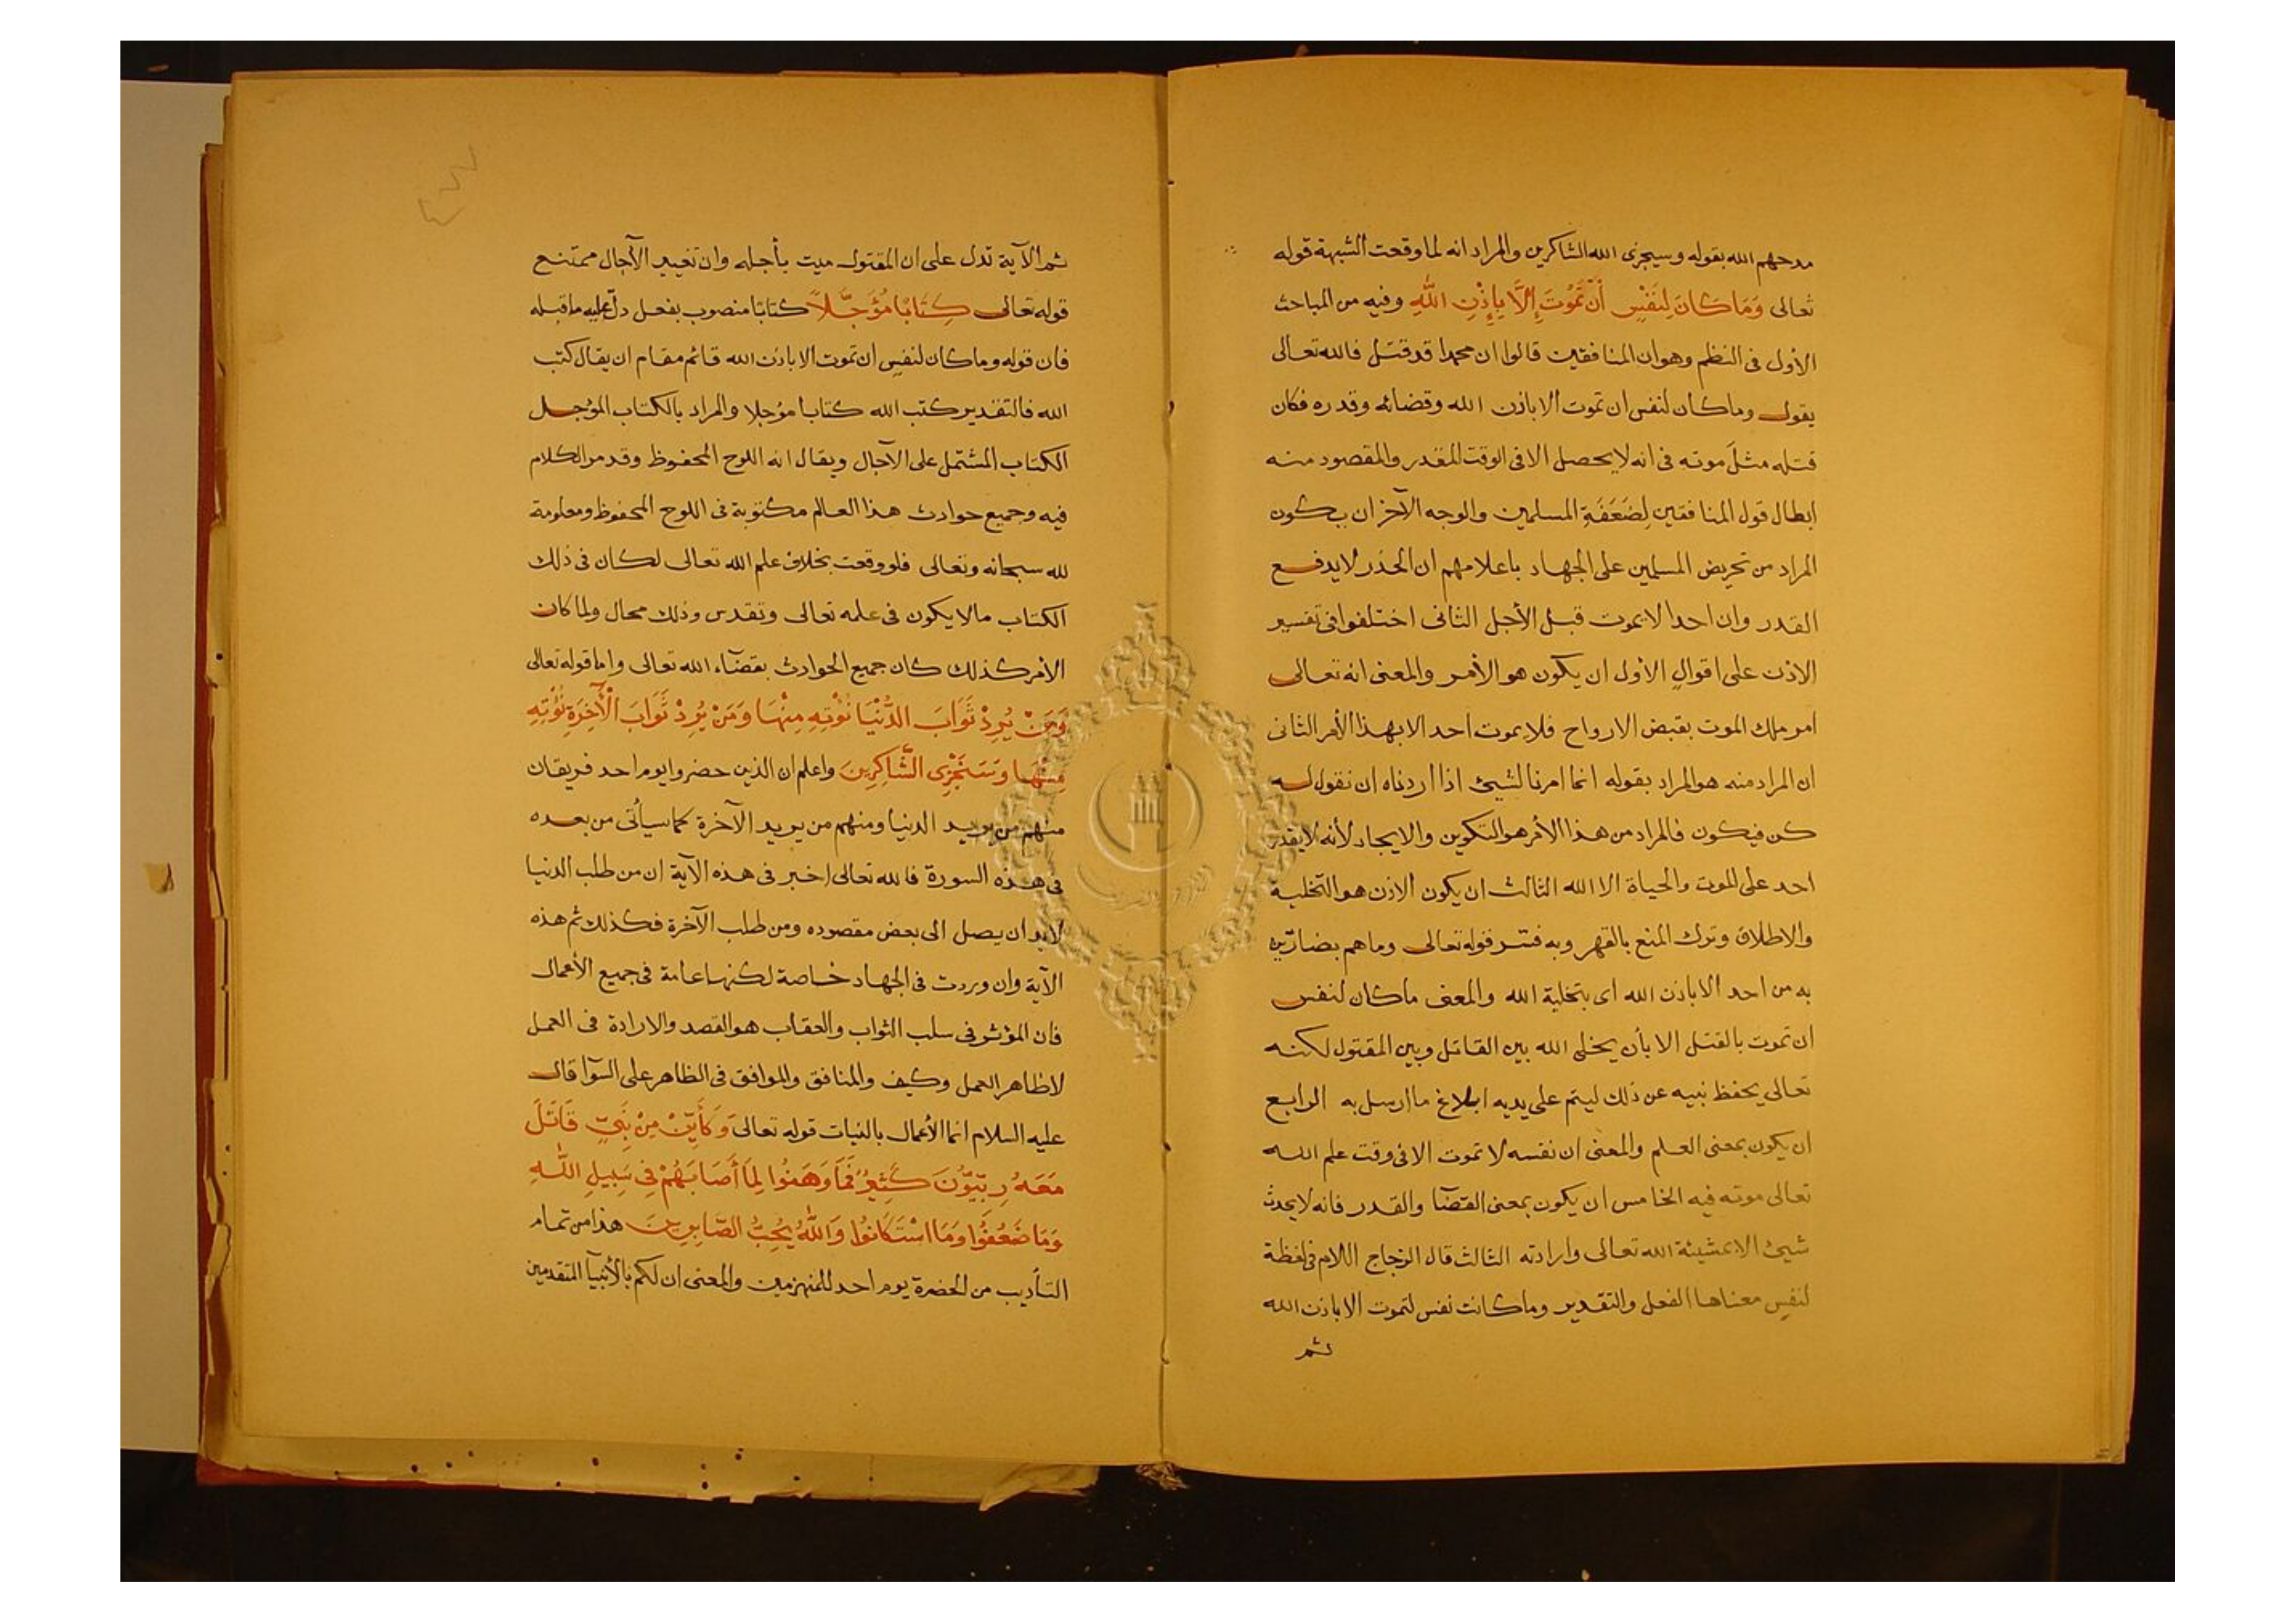 مدحهم الله بقوله وسيجزى الله الشاكرين والمراد انه لما وقعت الشبهة قوله
تعالى وَمَا كَانَ لِنَفْسٍ أَنْ تَمُوتَ إِلَّا بِإِذْنِ اللَّهِ وفيه من المباحث
الأول فى النظم وهو ان المنافقين قالوا ان محمدا قد قتل فالله تعالى
يقول وما كان لنفس ان تموت الا باذن الله وقضائه وقدره فكان
قتله مثل موته فى انه لا يحصل الا فى الوقت المقدر والمقصود منه
ابطال قول المنافقين لِضَعَفَةِ المسلمين والوجه الآخر ان يكون
المراد من تحريض المسلمين على الجهاد باعلامهم ان الحذر لا يدفع
القدر وان احدا لا يموت قبل الأجل الثانى اختلفوا فى تفسير
الاذن على اقوالٍ الاول ان يكون هو الأمر والمعنى انه تعالى
امر ملك الموت بقبض الارواح فلا يموت احد الا بهذا الأمر الثانى
ان المراد منه هو المراد بقوله انما امرنا لشيئ اذا اردناه ان نقول له
كن فيكون فالمراد من هذا الأمر هو التكوين والايجاد لأنه لا يقدر
احد على الموت والحياة الا الله الثالث ان يكون الاذن هو التخلية
والاطلاق وترك المنع بالقهر وبه فسر قوله تعالى وما هم بضارّين
به من احد الا باذن الله اى بتخلية الله والمعنى ما كان لنفس
ان تموت بالقتل الا بأن يخلى الله بين القاتل وبين المقتول لكنه
تعالى يحفظ نبيه عن ذلك ليتم على يديه ابلاغ ما ارسل به الرابع
ان يكون بمعنى العلم والمعنى ان نفسه لا تموت الا فى وقت علم الله
تعالى موته فيه الخامس ان يكون بمعنى القضآ والقدر فانه لا يحدث
شيئ الا بمشيئة الله تعالى وارادته الثالث قال الزجاج اللام فى لفظة
لنفسٍ معناها الفعل والتقدير وما كانت نفس لتموت الا باذن الله
ثم
ثم الآية تدل على ان المقتول ميت بأجله وان تغيير الآجال ممتنع
قوله تعالى كِتَابًا مُؤَجَّلاً كتابًا منصوب بفعل دلّ عليه ما قبله
فان قوله وما كان لنفسٍ ان تموت الا باذن الله قائم مقام ان يقال كتب
الله فالتقدير كتب الله كتابا مؤجلا والمراد بالكتاب المؤجل
الكتاب المشتمل على الآجال ويقال انه اللوح المحفوظ وقد مر الكلام
فيه وجميع حوادث هذا العالم مكتوبة فى اللوح المحفوظ ومعلومة
لله سبحانه وتعالى فلو وقعت بخلاف علم الله تعالى لكان فى ذلك
الكتاب ما لا يكون فى علمه تعالى وتقدس وذلك محال ولما كان
الأمر كذلك كان جميع الحوادث بقضآء الله تعالى واما قوله تعالى
وَمَنْ يُرِدْ ثَوَابَ الدُّنْيَا نُؤْتِهِ مِنْهَا وَمَنْ يُرِدْ ثَوَابَ الْآخِرَةِ نُؤْتِهِ
مِنْهَا وَسَنَجْزِى الشَّاكِرِينَ واعلم ان الذين حضروا يوم احد فريقان
منهم من يريد الدنيا ومنهم من يريد الآخرة كما سيأتى من بعده
فى هذه السورة فالله تعالى اخبر فى هذه الآية ان من طلب الدنيا
لابد ان يصل الى بعض مقصوده ومن طلب الآخرة فكذلك ثم هذه
الآية وان وردت فى الجهاد خاصة لكنها عامة فى جميع الأعمال
فان المؤثر فى سلب الثواب والعقاب هو القصد والارادة فى العمل
لا ظاهر العمل وكيف والمنافق والموافق فى الظاهر على السوآ قال
عليه السلام انما الأعمال بالنيات قوله تعالى وَكَأَيِّنْ مِنْ نَبِيٍّ قَاتَلَ
مَعَهُ رِبِّيُّونَ كَثِيرٌ فَمَا وَهَنُوا لِمَا أَصَابَهُمْ فِى سَبِيلِ اللَّهِ
وَمَا ضَعُفُوا وَمَا اسْتَكَانُوا وَاللَّهُ يُحِبُّ الصَّابِرِينَ هذا من تمام
التأديب من الحضرة يوم احد للمنهزمين والمعنى ان لكم بالأنبيآ المتقدمين